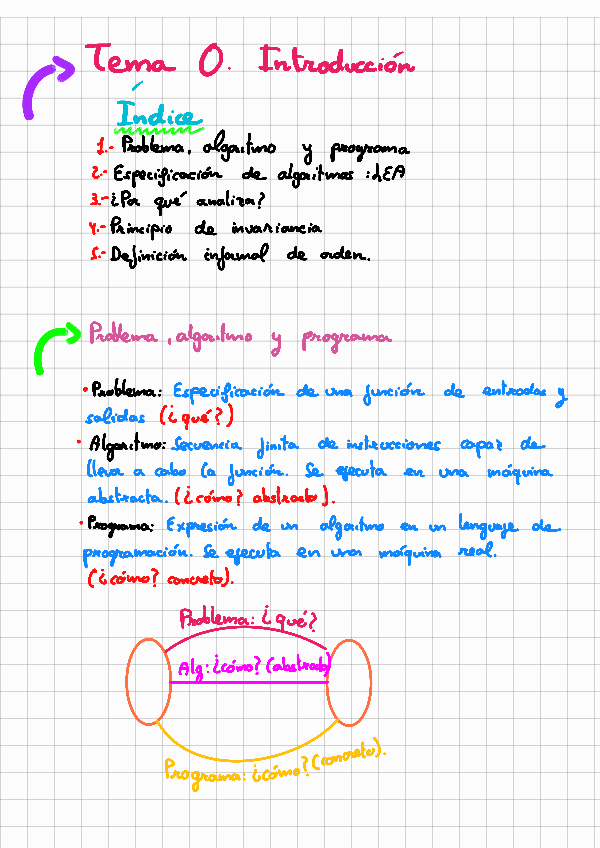 Tema 0. Introducción
Índice
1.- Problema, algoritmo y programa
2.- Especificación de algoritmos: LEA
3.- ¿Por qué analiza?
4.- Principio de invariancia
5.- Definición informal de orden.
Problema, algoritmo y programa
• Problema: Especificación de una función de entradas y
salidas (¿qué?)
• Algoritmo: Secuencia finita de instrucciones capaz de
lleva a cabo la función. Se ejecuta en una máquina
abstracta. (¿cómo? abstracto).
• Programa: Expresión de un algoritmo en un lenguaje de
programación. Se ejecuta en una máquina real.
(¿cómo? concreto).
Problema: ¿qué?
Alg: ¿cómo? (abstracto)
Programa: ¿cómo? (concreto).